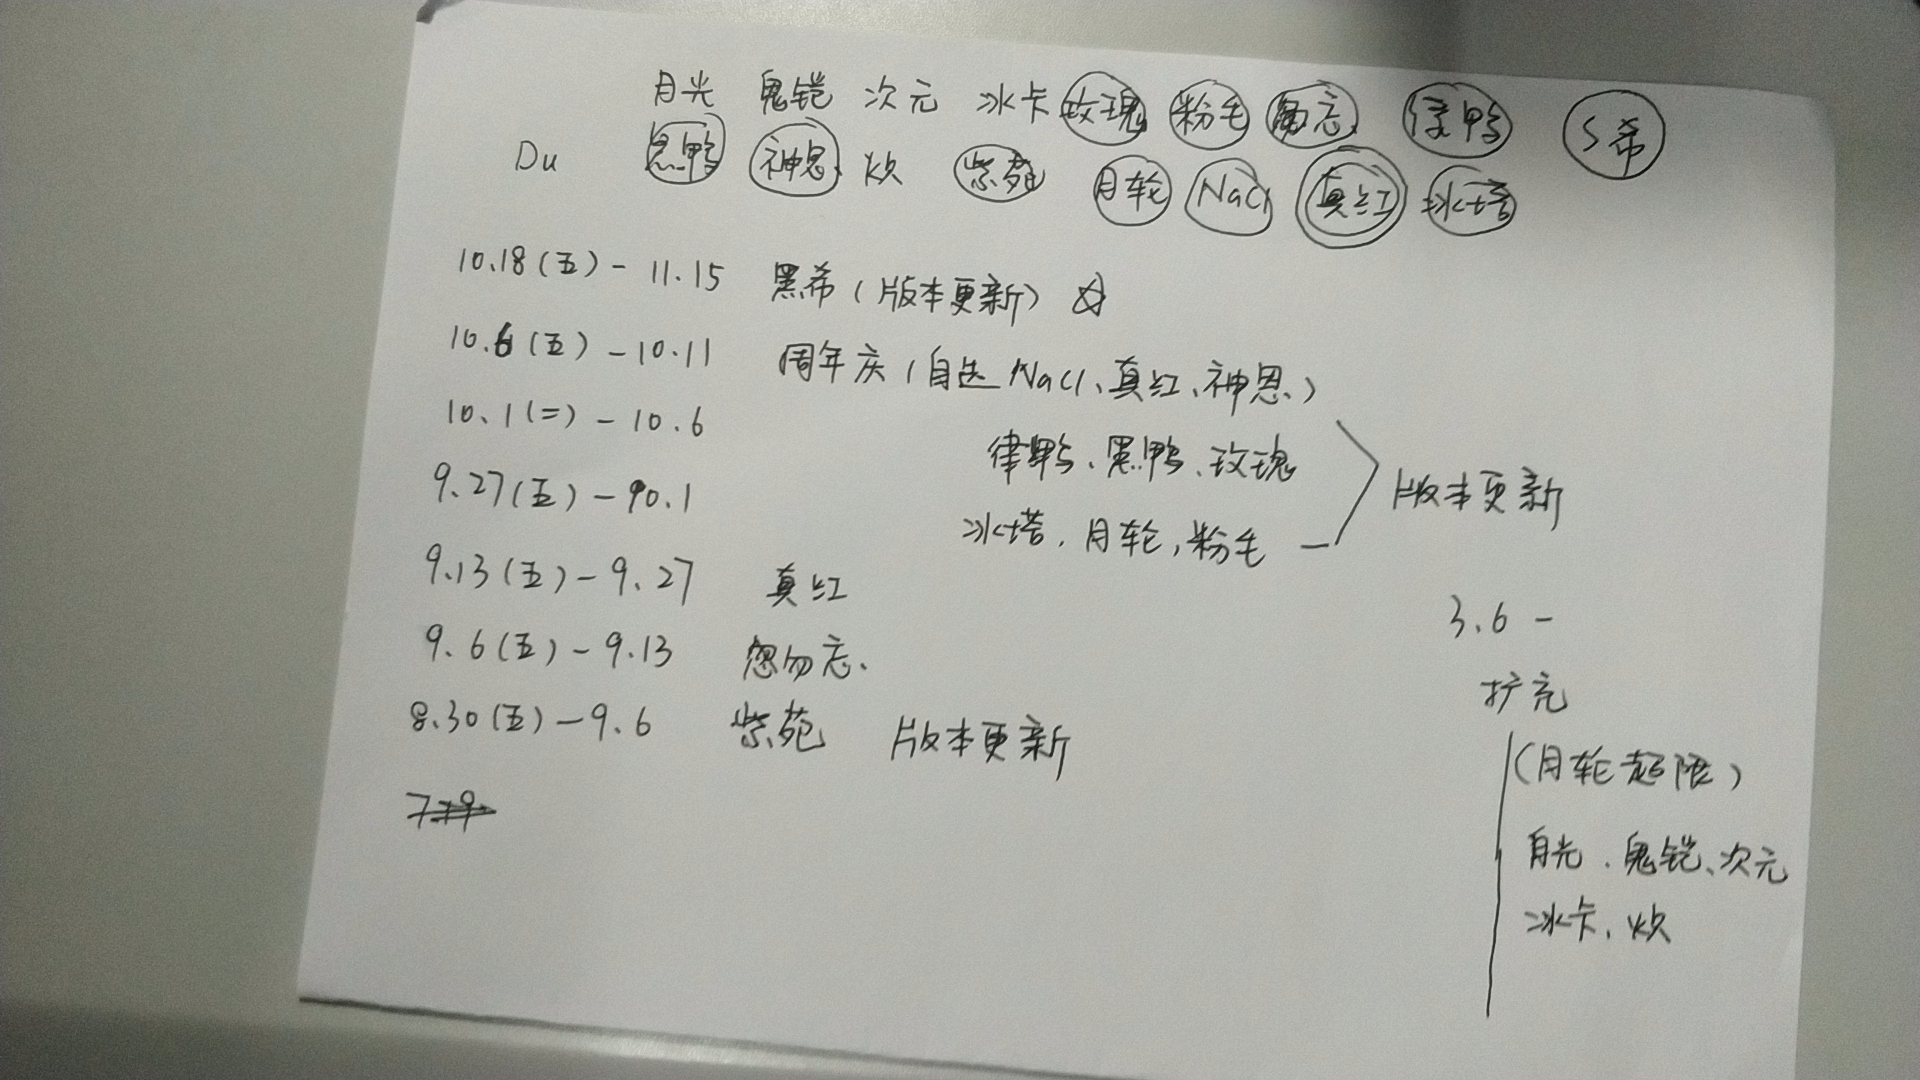 月光 鬼铠 次元 冰卡 玫瑰 粉毛 勿忘 律鸭 S希
Du 黑鸭 神恩 炊 紫苑 月轮 NaCl 真红 冰塔
10.18(五) - 11.15 黑希(版本更新) ☆
10.6(五) - 10.11 周年庆(自选 NaCl、真红、神恩)
10.1(二) - 10.6 律鸭、黑鸭、玫瑰
版本更新
9.27(五) - 10.1 冰塔、月轮,粉毛
9.13(五) - 9.27 真红
3.6 -
9.6(五) - 9.13 勿忘.
扩充
8.30(五) - 9.6 紫苑 版本更新
(月轮超限)
月光、鬼铠、次元
冰卡、炊